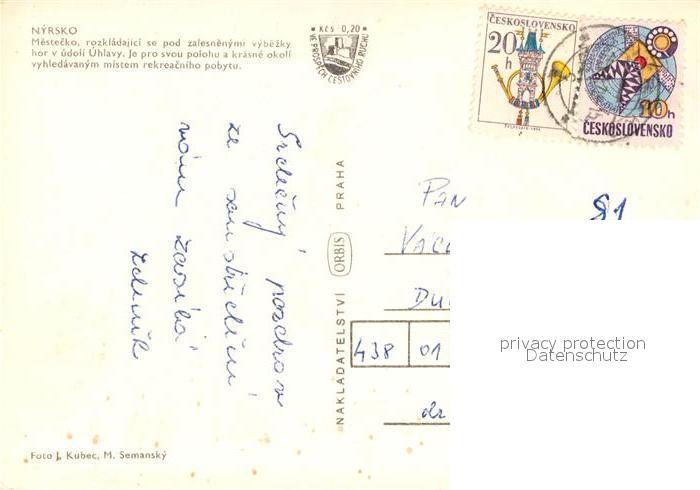 NÝRSKO
Městečko, rozkládající se pod zalesněnými výběžky
hor v údolí Úhlavy. Je pro svou polohu a krásné okolí
vyhledávaným místem rekreačního pobytu.
Kčs 0,20
VE PROSPĚCH CESTOVNÍHO RUCHU
ČESKOSLOVENSKO
20
h
10h
ČESKOSLOVENSKO
Srdečný pozdrav
ze
nám zasílá
Zeleník
NAKLADATELSTVÍ ORBIS PRAHA
PAN
81
VAC
DU
438 01
privacy protection
Datenschutz
Foto J. Kubec, M. Semanský